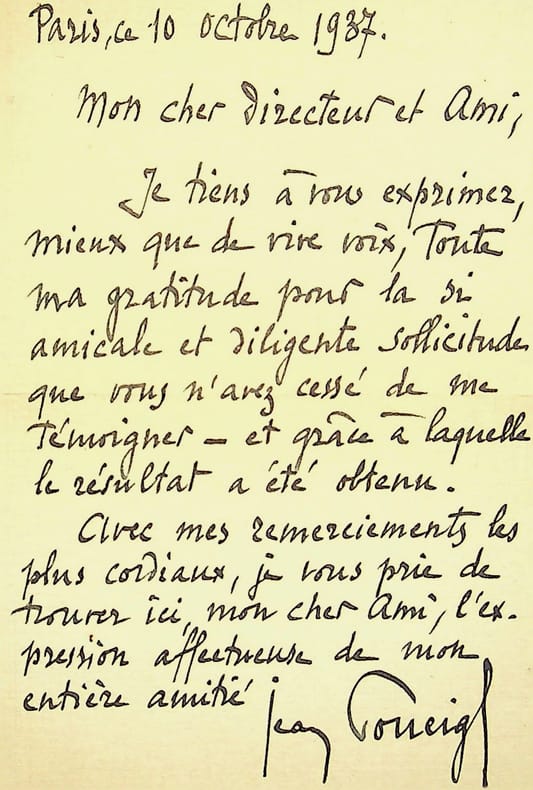 Paris, ce 10 octobre 1937.
Mon cher Directeur et Ami,
Je tiens à vous exprimer,
mieux que de vive voix, Toute
ma gratitude pour la si
amicale et diligente sollicitude
que vous n'avez cessé de me
témoigner – et grâce à laquelle
le résultat a été obtenu.
Avec mes remerciements les
plus cordiaux, je vous prie de
trouver ici, mon cher Ami, l'ex-
pression affectueuse de mon
entière amitié
Jean Poueigh